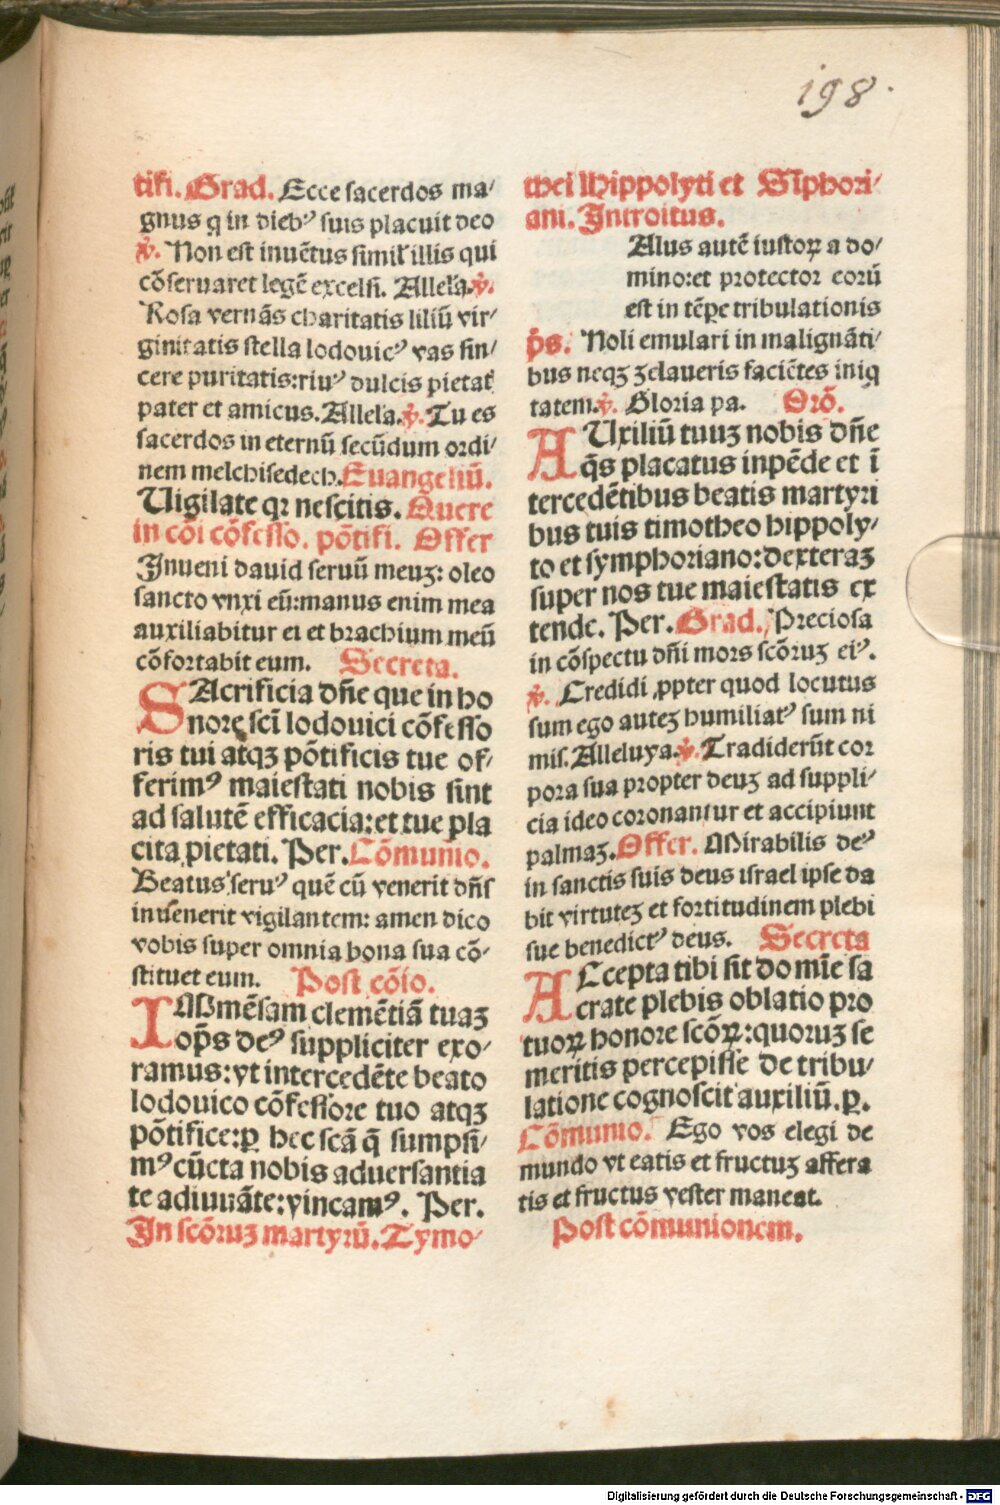 198.
tifi. Grad. Ecce sacerdos ma-
gnus q̄ in dieb⁹ suis placuit deo
℣. Non est inuētus simil' illis qui
cōseruaret legē excelsi. Allel'a. ℣.
Rosa vernās charitatis liliū vir-
ginitatis stella lodouic⁹ vas sin-
cere puritatis: riu⁹ dulcis pietat'
pater et amicus. Allel'a. ℣. Tu es
sacerdos in eternū secūdum ordi-
nem melchisedech. Euangeliū.
Uigilate qr nescitis. Quere
in cōi cōfesso. pōtifi. Offer
Inueni dauid seruū meuʒ: oleo
sancto vnxi eū: manus enim mea
auxiliabitur ei et brachium meū
cōfortabit eum. Secreta.
SAcrificia dn̄e que in ho
nore sc̄i lodouici cōfesso
ris tui atqʒ pōtificis tue of-
ferim⁹ maiestati nobis sint
ad salutē efficacia: et tue pla
cita pietati. Per. Cōmunio.
Beatus seru⁹ quē cū venerit dn̄s
inuenerit vigilantem: amen dico
vobis super omnia bona sua cō-
stituet eum. Post cōio.
IMmēsam clemētiā tuaʒ
op̄s de⁹ suppliciter exo-
ramus: vt intercedēte beato
lodouico cōfessore tuo atqʒ
pōtifice: ꝑ hec scā q̄ sumpsi-
m⁹ cūcta nobis aduersantia
te adiuuāte: vincam⁹. Per.
In scōruʒ martyrū. Tymo-
thei Hippolyti et Siphori-
ani. Introitus.
Alus autē iustoꝝ a do-
mino: et protector eorū
est in tēꝑe tribulationis
p̄s. Noli emulari in malignāti-
bus neqʒ ʒelaueris faciētes iniq
tatem. ℣. Gloria pa. Orō.
AUxiliū tuuʒ nobis dn̄e
q̄s placatus inpēde et ī
tercedētibus beatis martyri
bus tuis timotheo hippoly-
to et symphoriano: dexteraʒ
super nos tue maiestatis ex
tende. Per. Grad. Preciosa
in cōspectu dn̄i mors scōruʒ ei⁹.
℣. Credidi ꝓpter quod locutus
sum ego auteʒ humiliat⁹ sum ni
mis. Alleluya. ℣. Tradiderūt cor
pora sua propter deuʒ ad suppli-
cia ideo coronantur et accipiunt
palmaʒ. Offer. Mirabilis de⁹
in sanctis suis deus israel ipse da
bit virtuteʒ et fortitudinem plebi
sue benedict⁹ deus. Secreta
ACcepta tibi sit domīe sa
crate plebis oblatio pro
tuoꝝ honore scōꝝ: quoruʒ se
meritis percepisse de tribu-
latione cognoscit auxiliū. ꝑ.
Cōmunio. Ego vos elegi de
mundo vt eatis et fructuʒ affera
tis et fructus vester maneat.
Post cōmunionem.
Digitalisierung gefördert durch die Deutsche Forschungsgemeinschaft - DFG